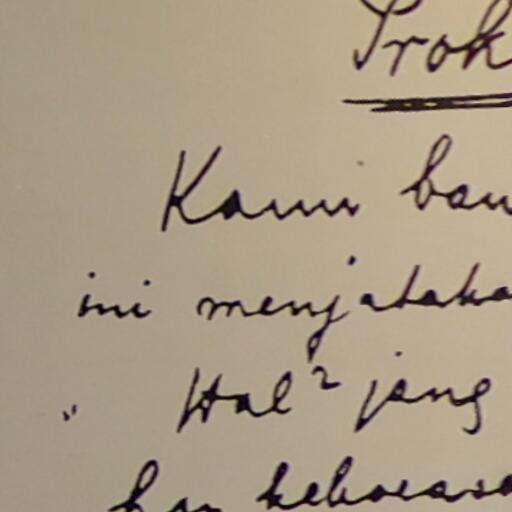 Prok
Kami ban
ini menjataka
Hal² jang
kan kekoeasa